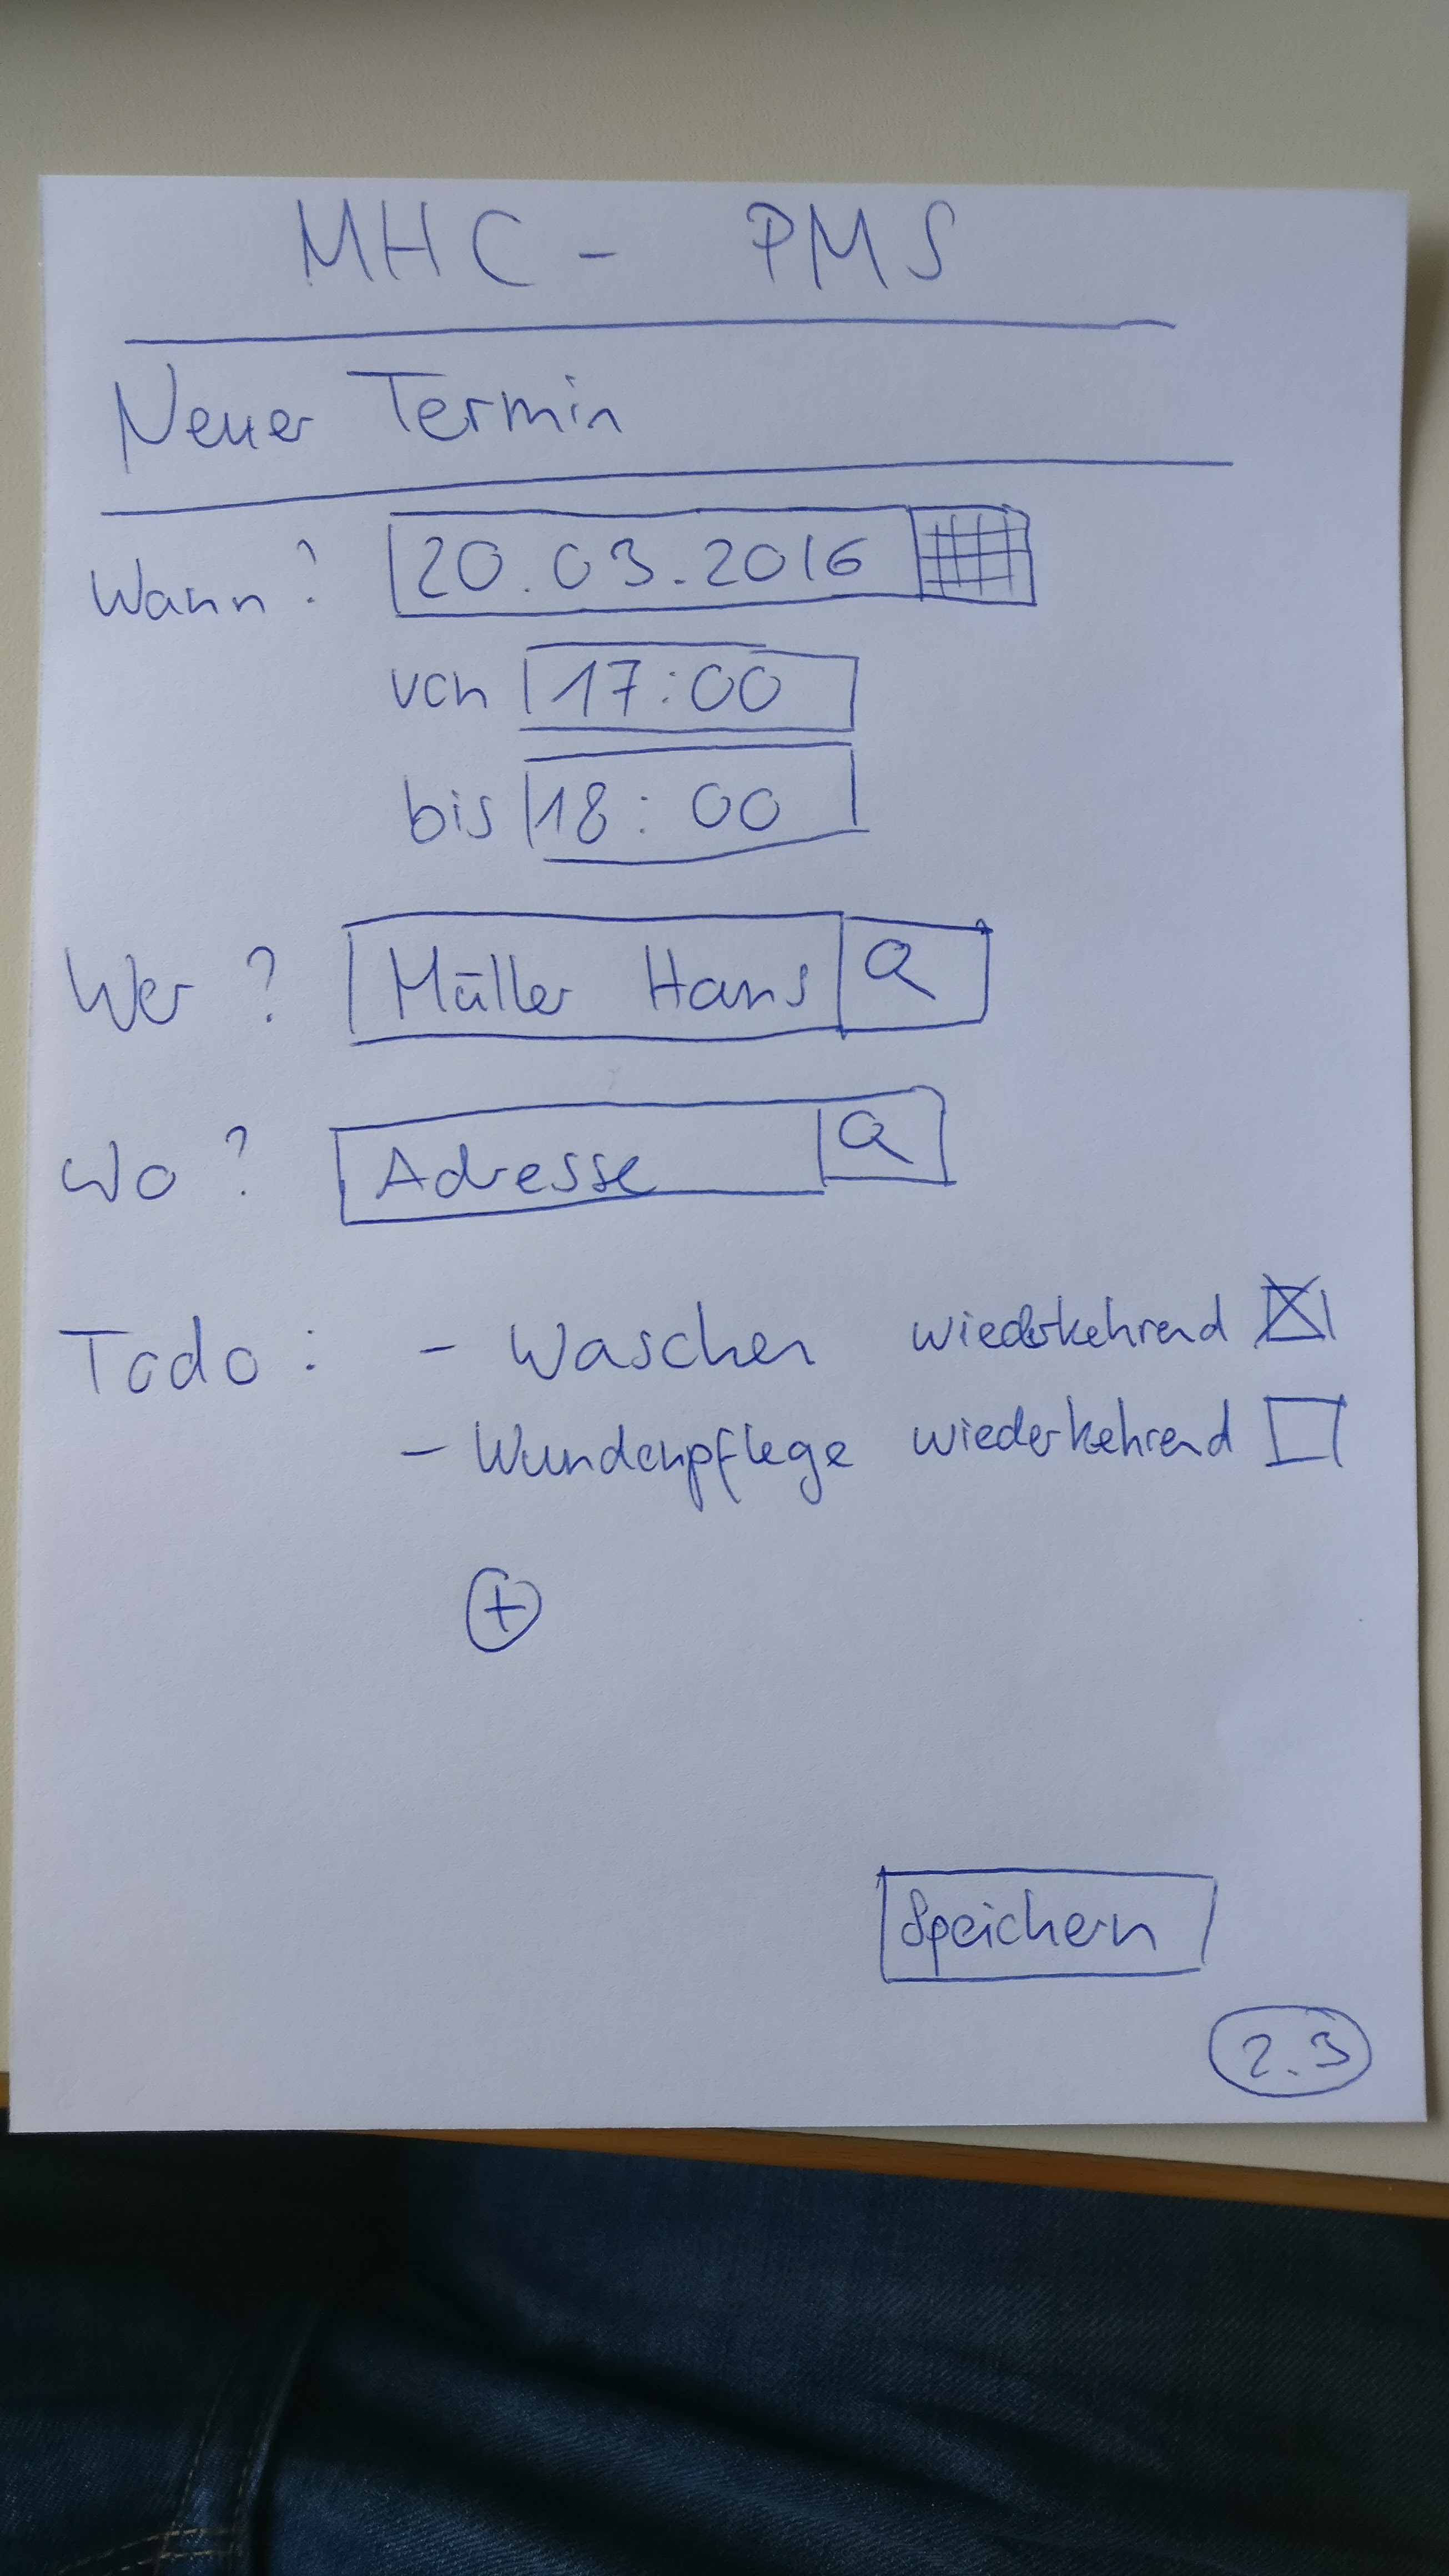 MHC - PMS
Neuer Termin
Wann? 20.03.2016
von 17:00
bis 18:00
Wer? Müller Hans
Wo? Adresse
Todo: - Waschen wiederkehrend
- Wundenpflege wiederkehrend
+
Speichern
2.3